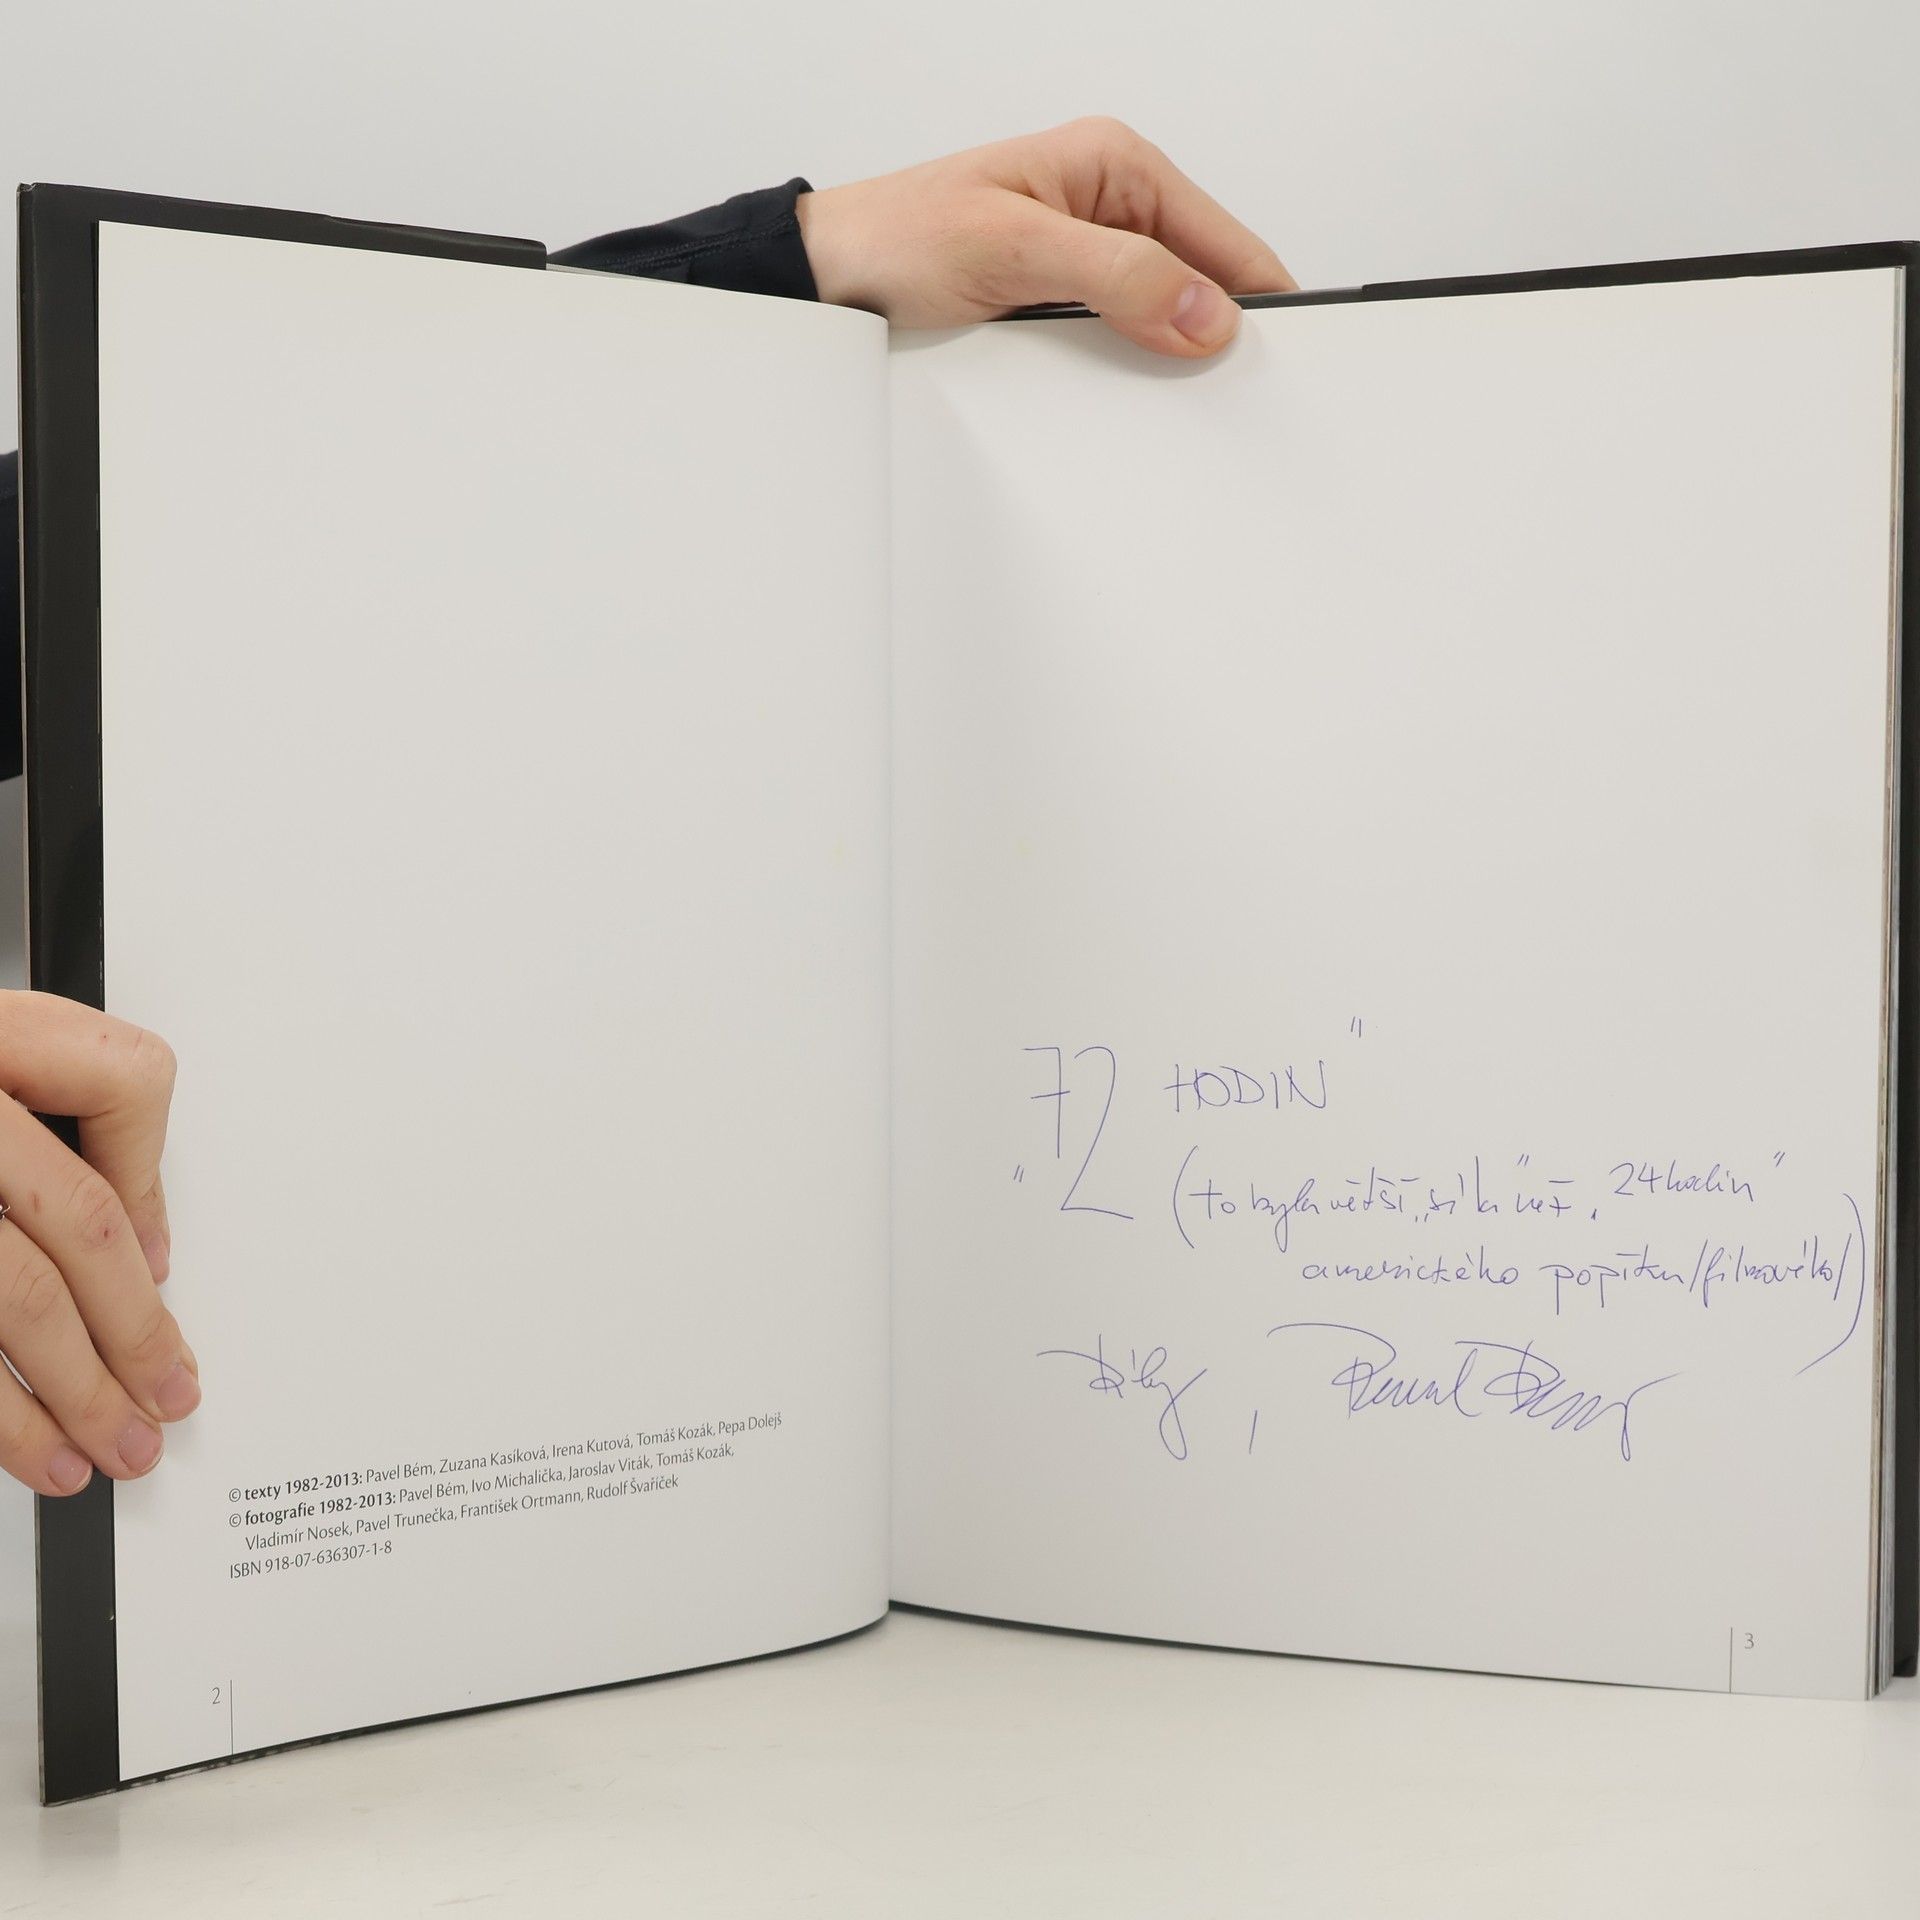 © texty 1982-2013: Pavel Bém, Zuzana Kasíková, Irena Kutová, Tomáš Kozák, Pepa Dolejš
© fotografie 1982-2013: Pavel Bém, Ivo Michalička, Jaroslav Viták, Tomáš Kozák,
Vladimír Nosek, Pavel Trunečka, František Ortmann, Rudolf Švaříček
ISBN 918-07-636307-1-8
2
„72 HODIN"
(to byla větší „síla" než „24 hodin"
amerického /filmového/)
Díky, Pavel
3